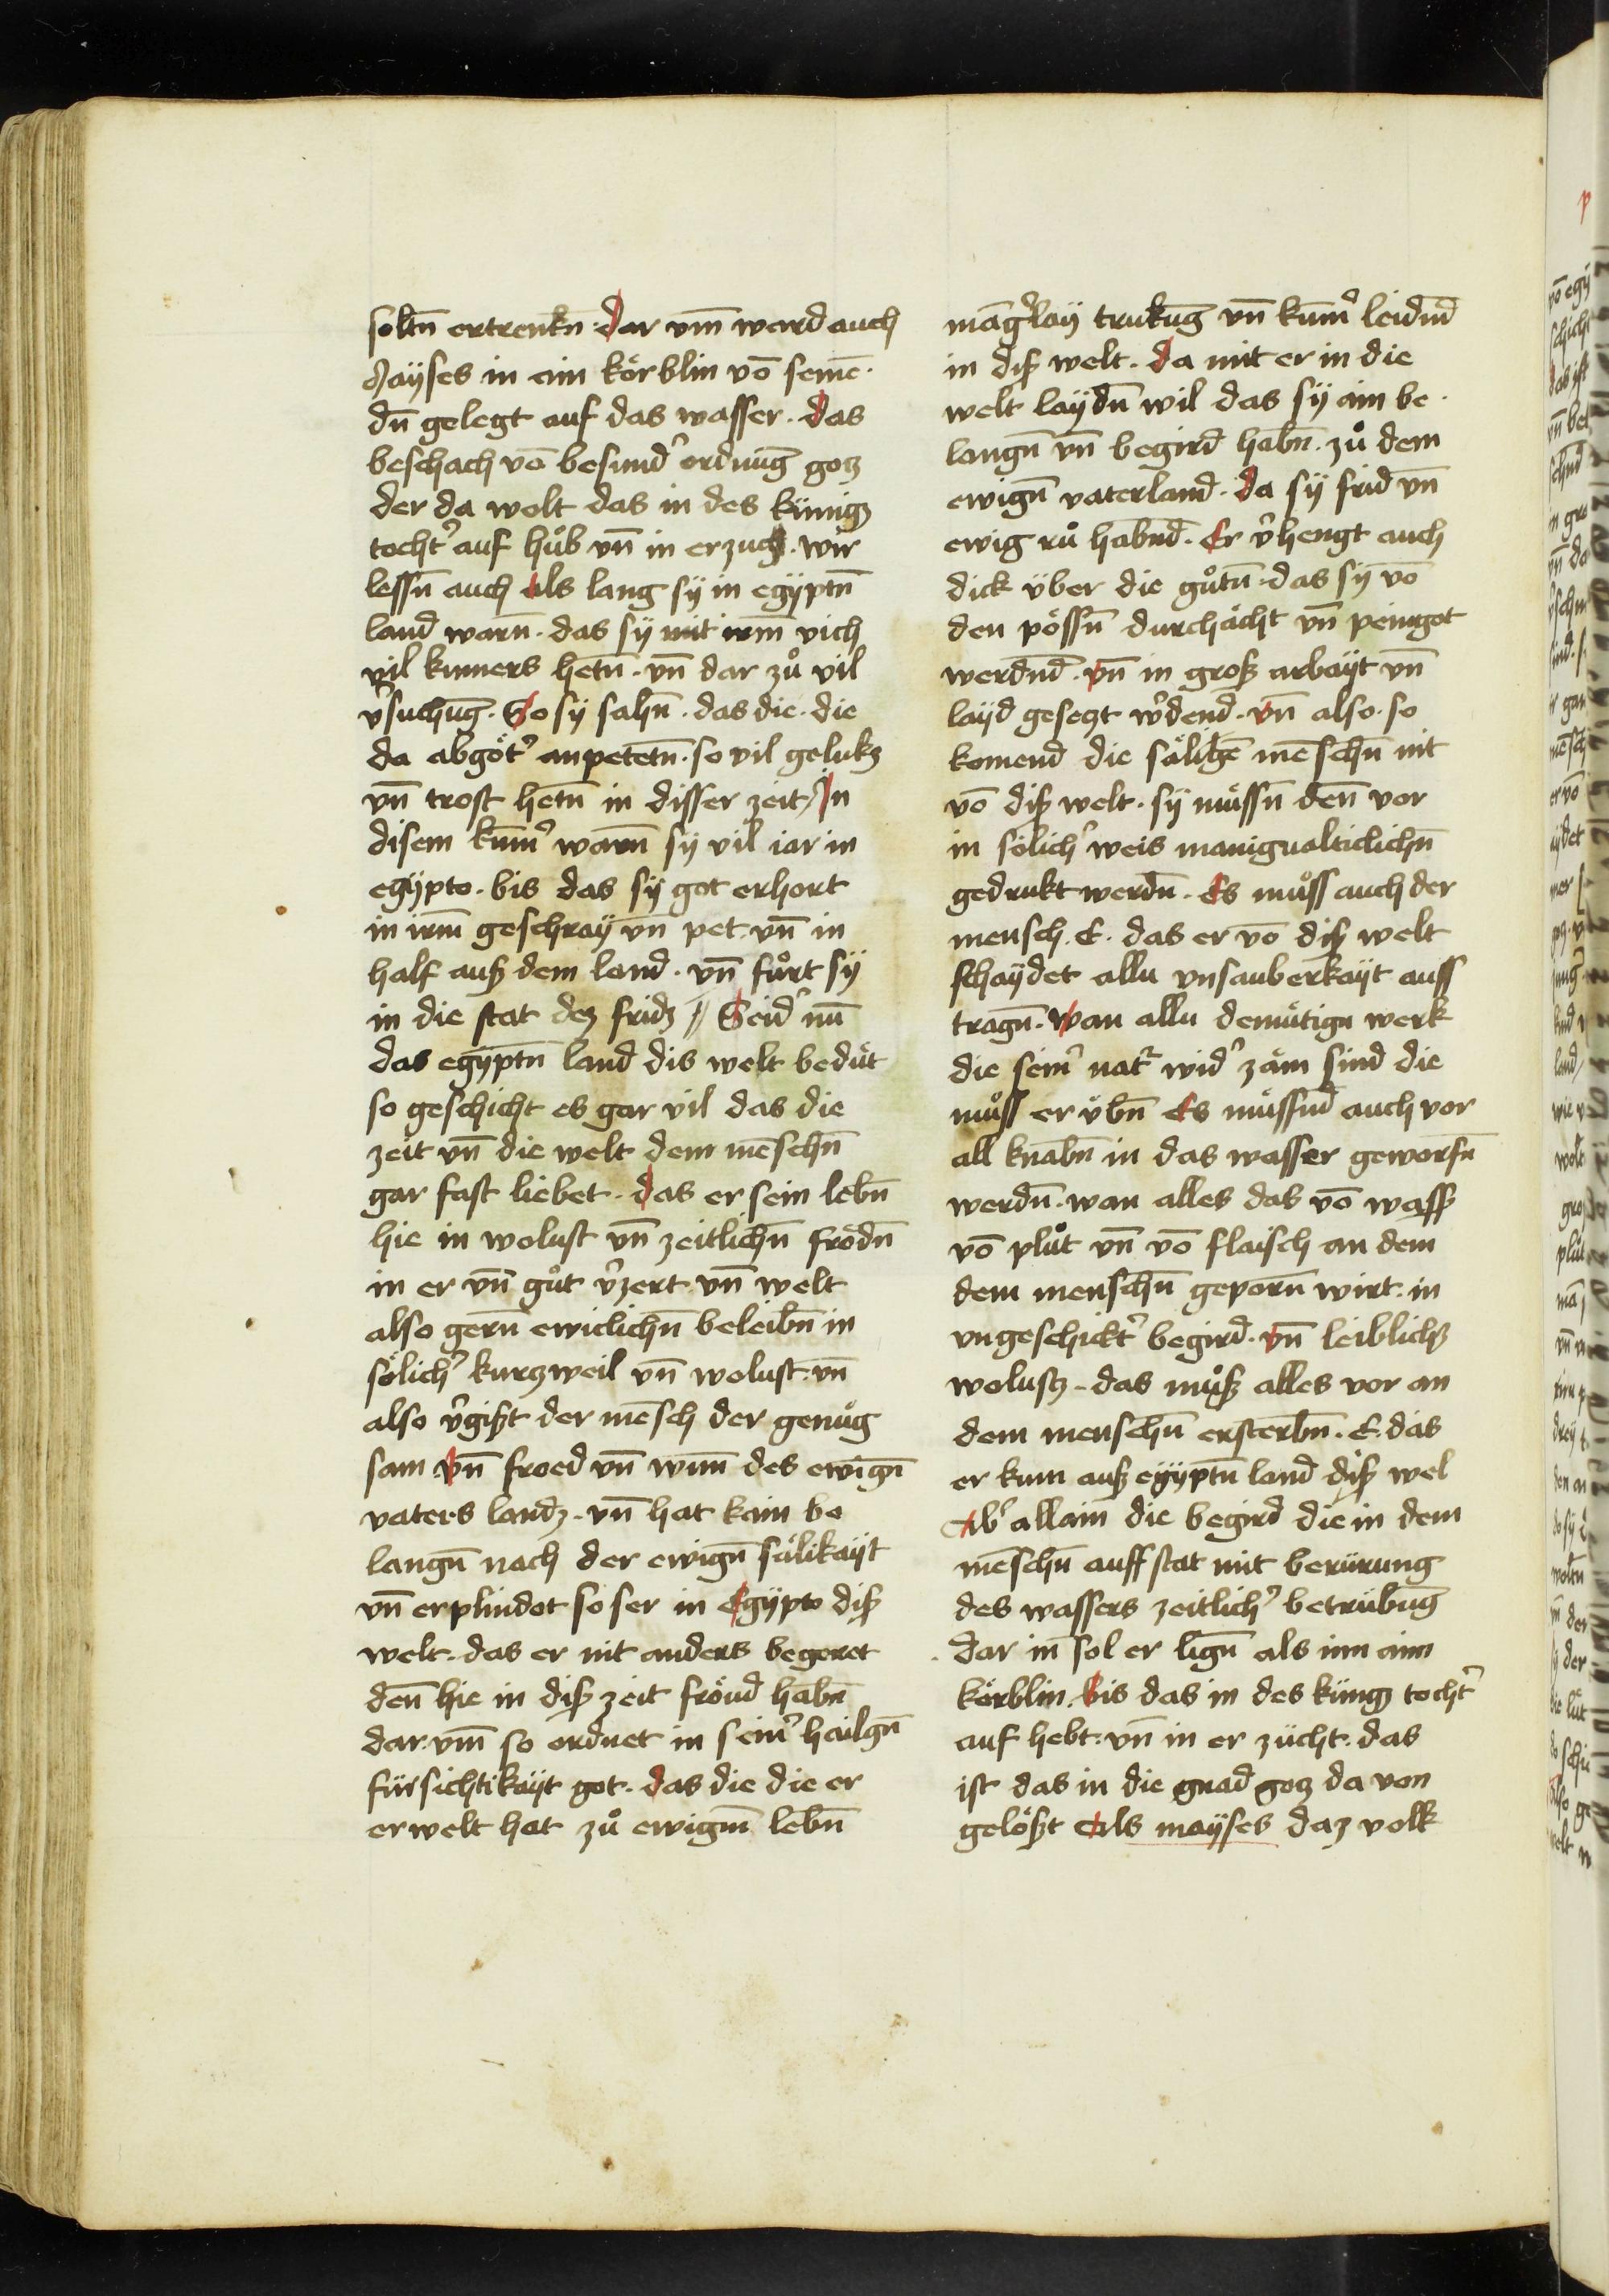 soltn̄ ertrenkn̄ · Dar vm̄ ward auch
Mayses in ain körblin vō semē ·
dn̄ gelegt auf das wasser · das
beschach vō besund͛ ordnūg gotz
der da wolt das in des künigz
tocht͛ auf hůb vn̄ in erzuch · wir
lessn̄ auch als lang sÿ in egÿptn̄
land warn̄ · das sÿ mit irm̄ vich
vil kumers hetn̄ · vn̄ dar zů vil
v͛suchūg · So sÿ sahn̄ · das die · die
da abgöt͛ anpetetn̄ · so vil gelukz
vn̄ trost hetn̄ in disser zeit / In
disem kum̄͛ warn̄ sÿ vil iar in
egÿpto · bis das sÿ got erhort
in irm̄ geschraÿ vn̄ pet · vn̄ in
half auß dem land · vn̄ fůrt sÿ
in die stat dez fridz // Seid͛ nū
das egÿptn̄ land dis welt bedüt
so geschicht es gar vil das die
zeit vn̄ die welt dem mēschn̄
gar fast liebet · das er sein lebn̄
hie in wolust vn̄ zeitlichn̄ frödn̄
in er vn̄ gůt v͛zert · vn̄ welt
also gern̄ ewiclichn̄ beleibn̄ in
sölich͛ kurzweil vn̄ wolust · vn̄
also v͛gißt der mēsch der genůg
sam vn̄ froed vn̄ wun̄ des ewign̄
vaters landz · vn̄ hat kain be
langn̄ nach der ewign̄ sälikaÿt
vn̄ erplindet so ser in Egÿpto diß
welt · das er nit anders begeret
den̄ hie in diß zeit fröud habn̄
dar · vm̄ so ordnet in sein͛ hailgn̄
fürsichtikaÿt got · das die die er
erwelt hat zů ewigm̄ lebn̄
māg͛laÿ trukūg vn̄ kum̄͛ leidnd̄
in diß welt · da mit er in die
welt laÿdn̄ wil das sÿ ain be ·
langn̄ vn̄ begird habn̄ · zů dem
ewign̄ vaterland · da sÿ frid vn̄
ewig rů habnd̄ · Er v͛hengt auch
dick über die gůtn̄ · das sÿ vō
den pössn̄ durchächt vn̄ peinget
werdnd̄ · vn̄ in groß arbaÿt vn̄
laÿd gesetzt w͛dend · vn̄ also · so
komend die säligē mēschn̄ nit
vō diß welt · sÿ müssn̄ den̄ vor
in sölich͛ weis manigualticlichn̄
gedrukt werdn̄ · Es můss auch der
mensch · E · das er vō diß welt
schaÿdet allu vnsauberkaÿt auss
tragn̄ · Wan allu demütign werk
die sein͛ nat͛ wid͛ zäm sind die
můss er übn̄ Es müssnd̄ auch vor
all knabn̄ in das wasser geworfn̄
werdn̄ · wan alles das vō wass͛
vō plůt vn̄ vō flaisch an dem
dem menschn̄ geporn̄ wirt · in
vngeschickt͛ begird · vn̄ leiblichz
wolustz · das můß alles vor an
dem menschn̄ ersterbn̄ · E · das
er kum auß egÿptn̄ land diß wel
Ab͛ allain die begird die in dem
mēschn̄ auff stat mit berürung
des wassers zeitlich͛ betrübūg
dar in sol er lign̄ als inn ainn
körblin bis das in des küngz tocht͛
auf hebt · vn̄ in er zücht · das
ist das in die gnad gotz da von
gelößt Als mayses daz volk